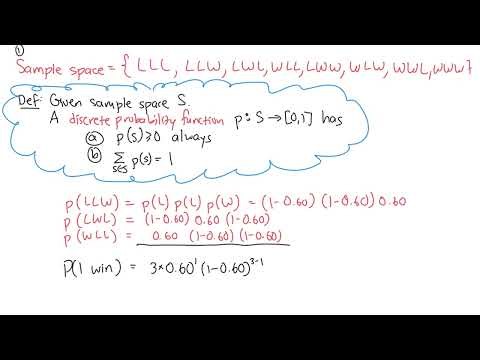 ①
Sample space = { LLL, LLW, LWL, WLL, LWW, WLW, WWL, WWW}
Def: Given sample space S.
A discrete probability function p: S → [0,1] has
ⓐ p(s) ≥ 0 always
ⓑ ∑ s∈S p(s) = 1
p(LLW) = p(L) p(L) p(W) = (1-0.60) (1-0.60) 0.60
p(LWL) = (1-0.60) 0.60 (1-0.60)
p(WLL) = 0.60 (1-0.60) (1-0.60)
P(1 win) = 3×0.60¹ (1-0.60)³⁻¹